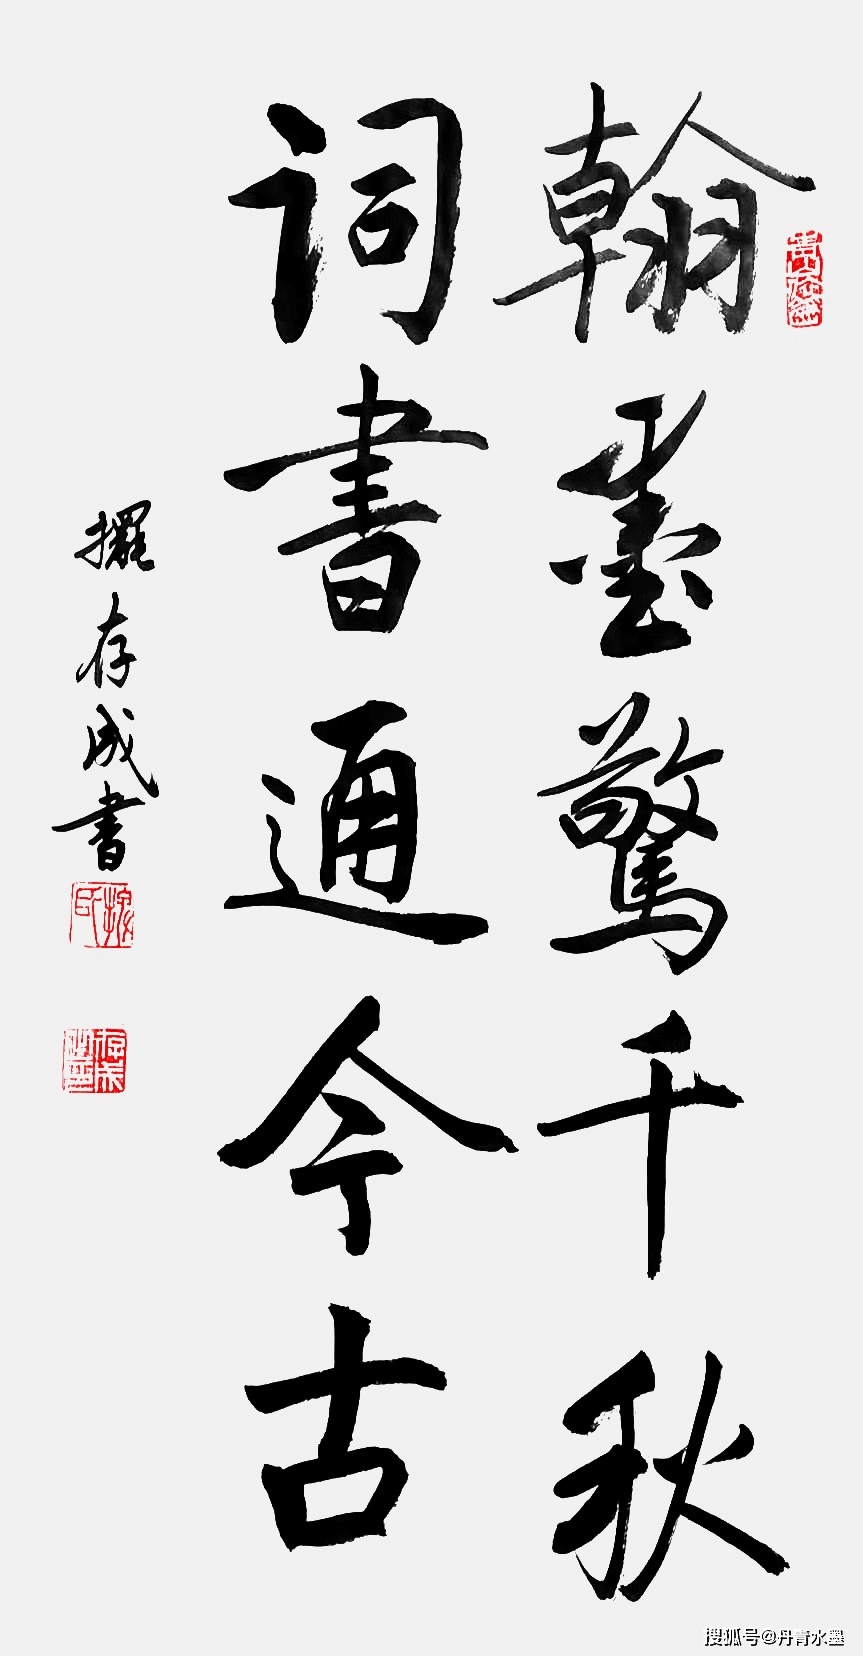 翰墨驚千秋
詞書通今古
存成書
搜狐号@丹青水墨